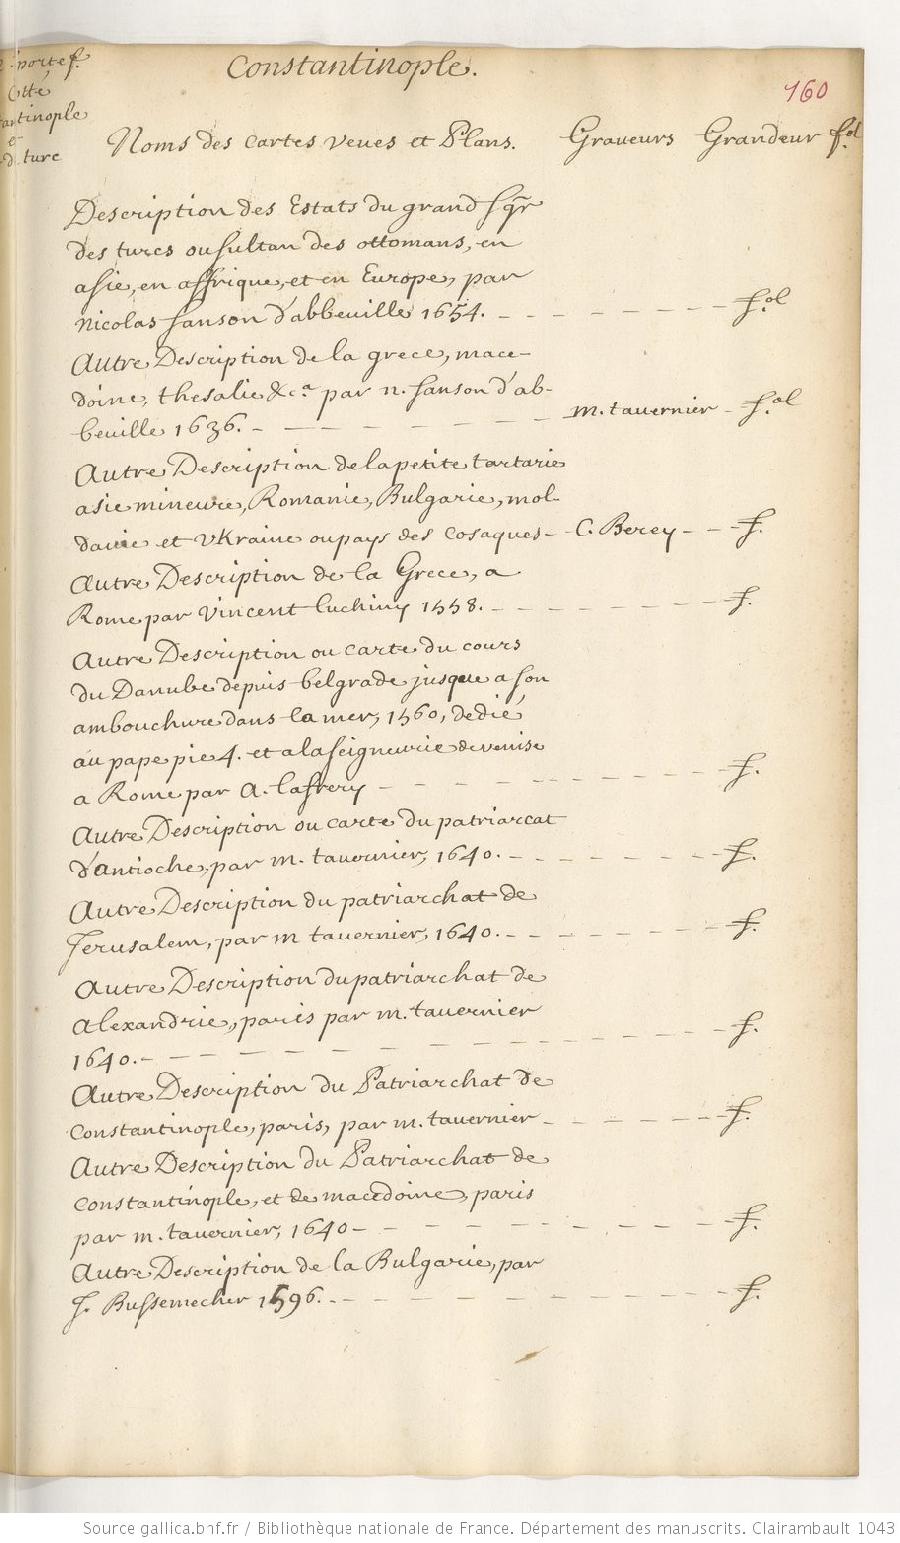 portef.
Cotté
Constantinople.
160
Noms des cartes veues et Plans. Graveurs Grandeur fol.
Description des Estats du grand sgr
des turcs ou sultan des ottomans, en
asie, en affrique, et en Europe, par
nicolas sanson d'abbeuille 1654. - - - - - - - - fol.
Autre Description de la grece, mace-
doine, thesalie &c.a par n. sanson d'ab-
beuille 1636. - - - - - - - - m. tavernier - fol.
Autre Description de la petite tartarie
asie mineure, Romanie, Bulgarie, mol-
davie et vKraine ou pays des cosaques - - C. Berey - - - f.
Autre Description de la Grece, a
Rome par vincent luchiny 1558. - - - - - - - - f.
Autre Description ou carte du cours
du Danube depuis belgrade jusque a son
ambouchure dans la mer, 1560, dedié
au pape pie 4. et a la seigneurie de venise
a Rome par A. lafrery - - - - - - - - f.
Autre Description ou carte du patriarcat
d'antioche, par m. tavernier, 1640. - - - - - - - f.
Autre Description du patriarchat de
Jerusalem, par m tavernier, 1640. - - - - - - - f.
Autre Description du patriarchat de
alexandrie, paris par m. tavernier
1640. - - - - - - - - - - - - f.
Autre Description du Patriarchat de
Constantinople, paris, par m. tavernier - - - - - - f.
Autre Description du Patriarchat de
constantinople, et de macedoine, paris
par m. tavernier, 1640 - - - - - - - - - f.
Autre Description de la Bulgarie, par
J. Bussemecher 1596. - - - - - - - - - f.
Source gallica.bnf.fr / Bibliothèque nationale de France. Département des manuscrits. Clairambault 1043